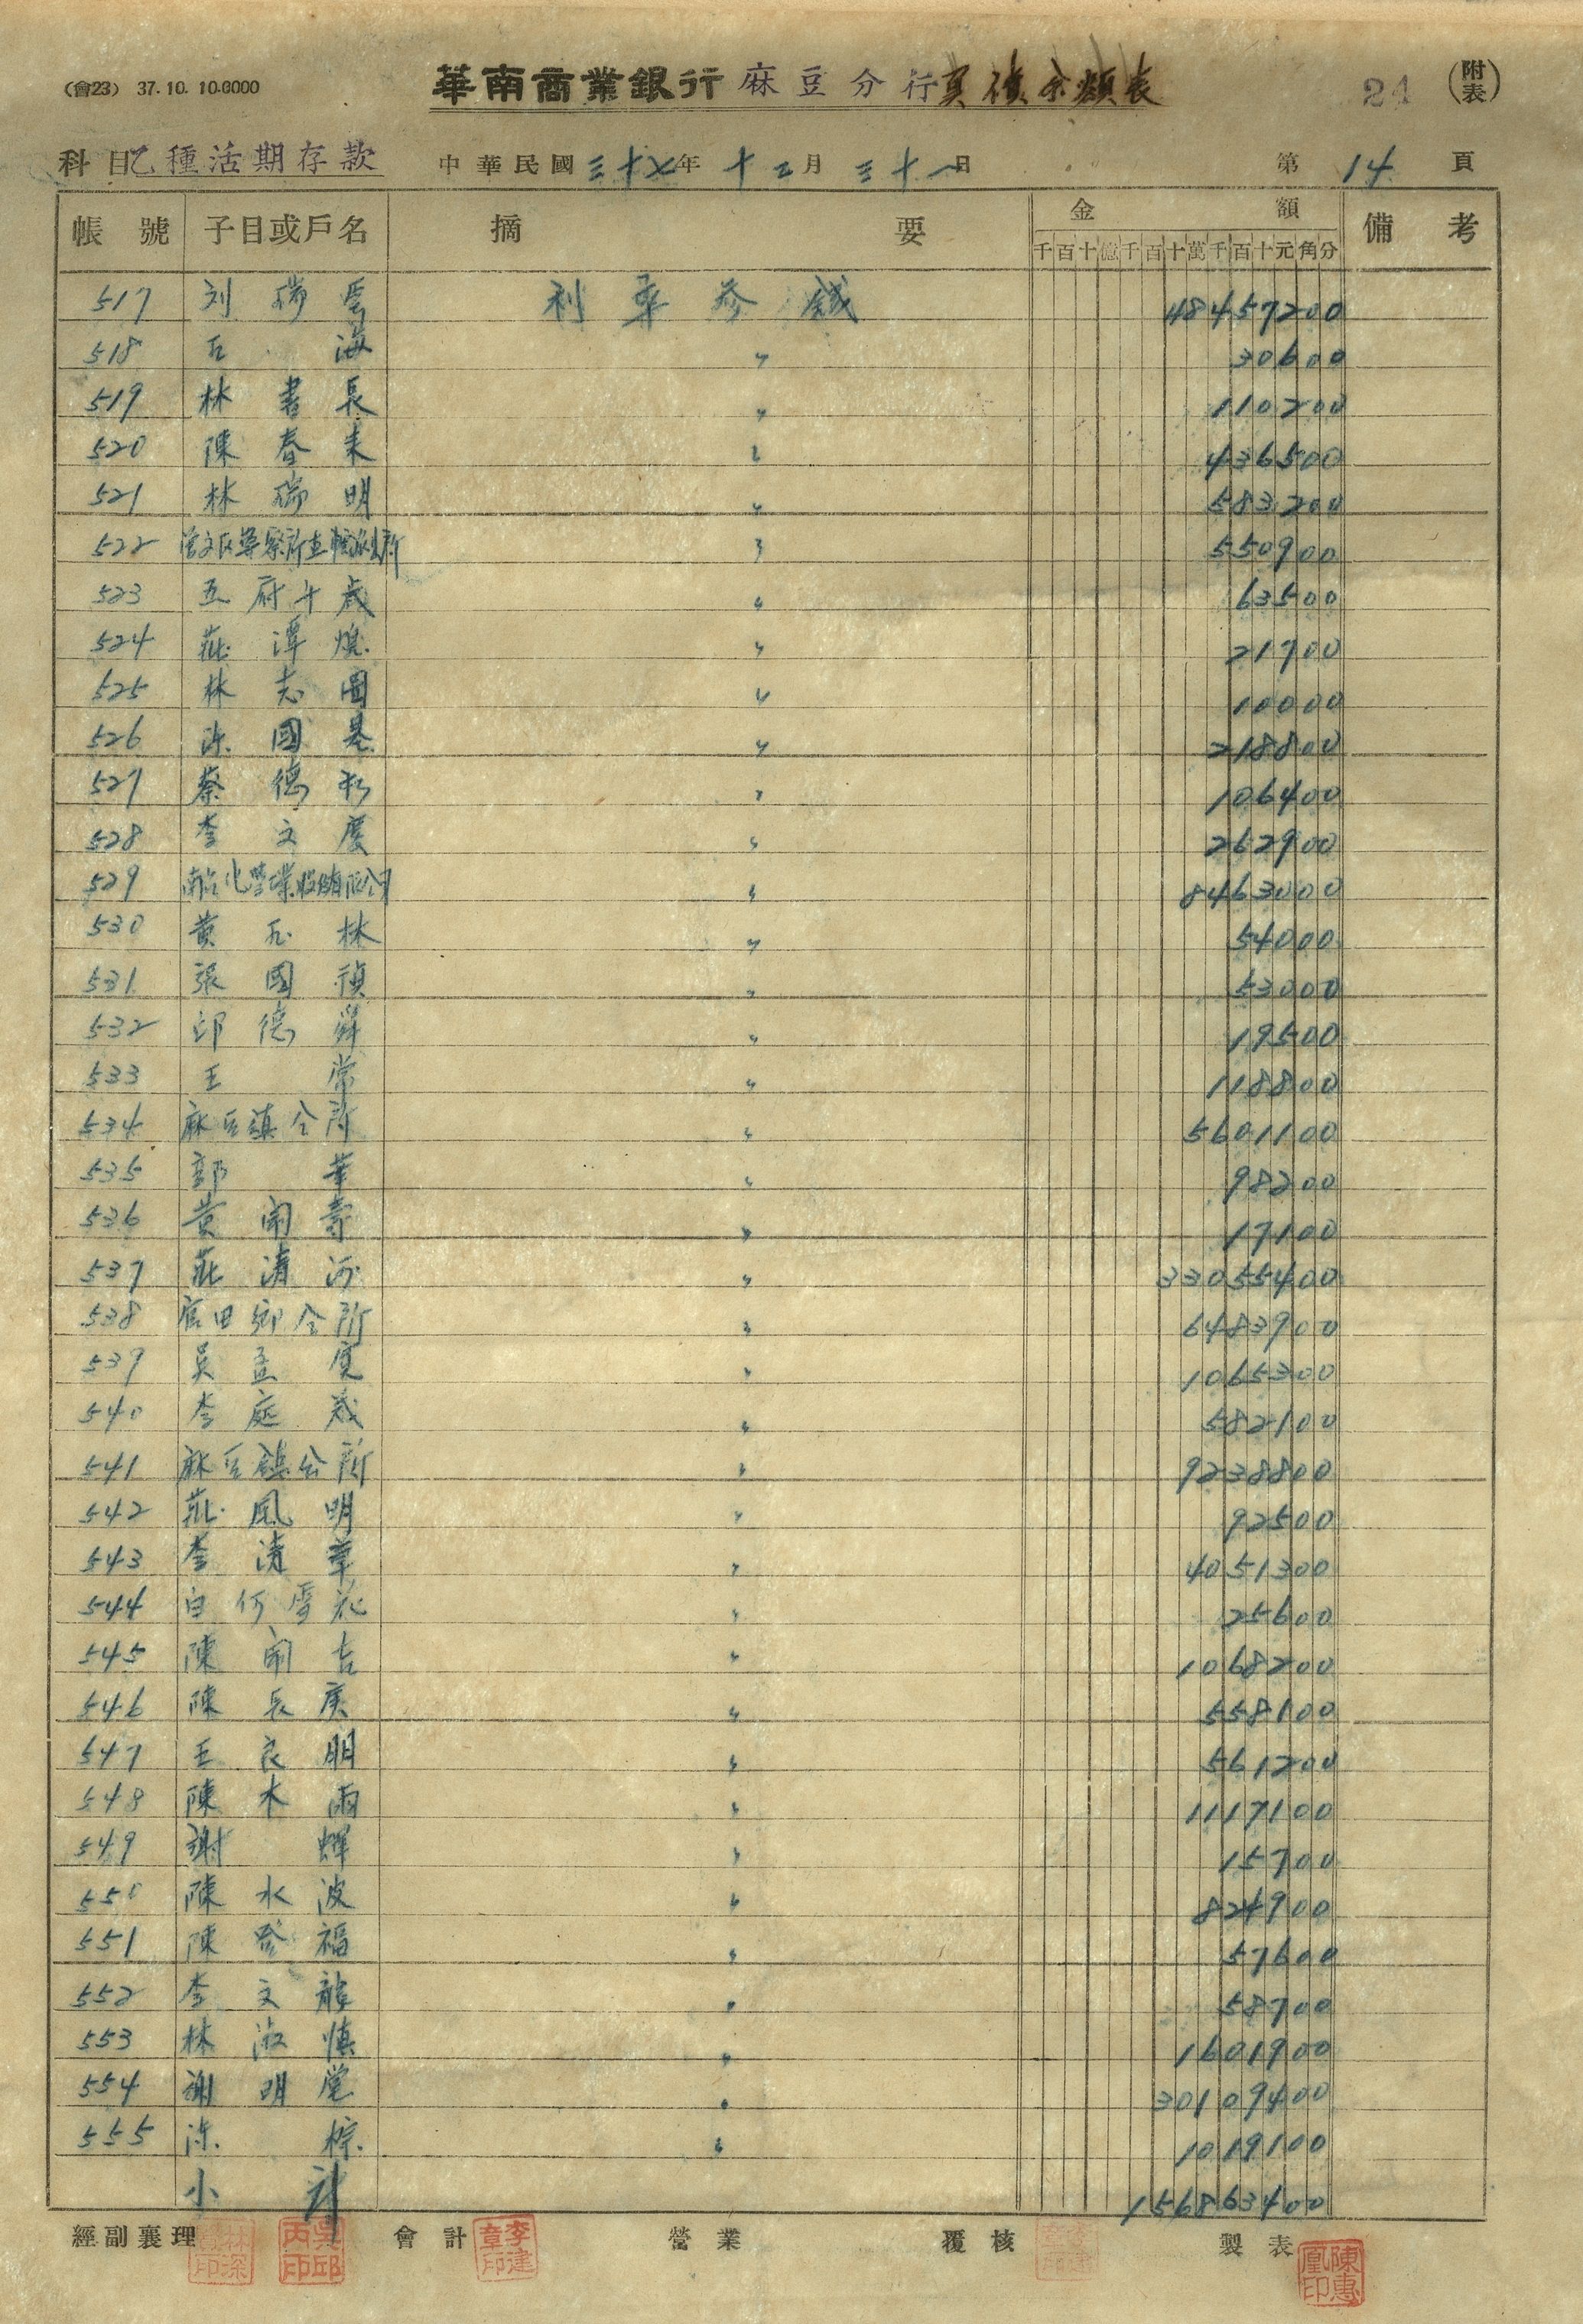 (會23) 37.10.10.6000
華南商業銀行 麻豆分行 負債余額表
24 (附表)
科目 乙種活期存款 中華民國三十七年十二月三十一日 第14頁
帳號 子目或戶名 摘要 金額 備考
千百十億千百十萬千百十元角分
517 刘瑞雲 利率參錢 48457200
518 石海 〃 30600
519 林書長 〃 110200
520 陳春来 〃 436500
521 林瑞明 〃 583200
522 〃 550900
523 五府千歲 〃 63500
524 莊潭 〃 21700
525 林志圖 〃 10000
526 國基 〃 218800
527 蔡德 〃 106400
528 李文慶 〃 262900
529 〃 8463000
530 黃石林 〃 54000
531 張國禎 〃 53000
532 邱德舜 〃 19500
533 王常 〃 118800
534 麻豆鎮公所 〃 5601100
535 郭華 〃 98200
536 黃開壽 〃 17100
537 莊清河 〃 33055400
538 官田鄉公所 〃 6483900
539 吳孟寬 〃 1065300
540 李庭 〃 582100
541 麻豆鎮公所 〃 9238800
542 莊風明 〃 92500
543 李清華 〃 4051300
544 白何雪花 〃 25600
545 陳開吉 〃 1068200
546 陳長庚 〃 558100
547 王良朋 〃 561200
548 陳木雨 〃 1117100
549 謝輝 〃 15700
550 陳水波 〃 824900
551 陳發福 〃 57600
552 李文龍 〃 58700
553 林淑慎 〃 1601900
554 謝明堂 〃 30109400
555 〃 1019100
小計 156863400
經副襄理 會計 營業 覆核 製表
林深 印 吳邱丙印 李建章印 陳惠凰印